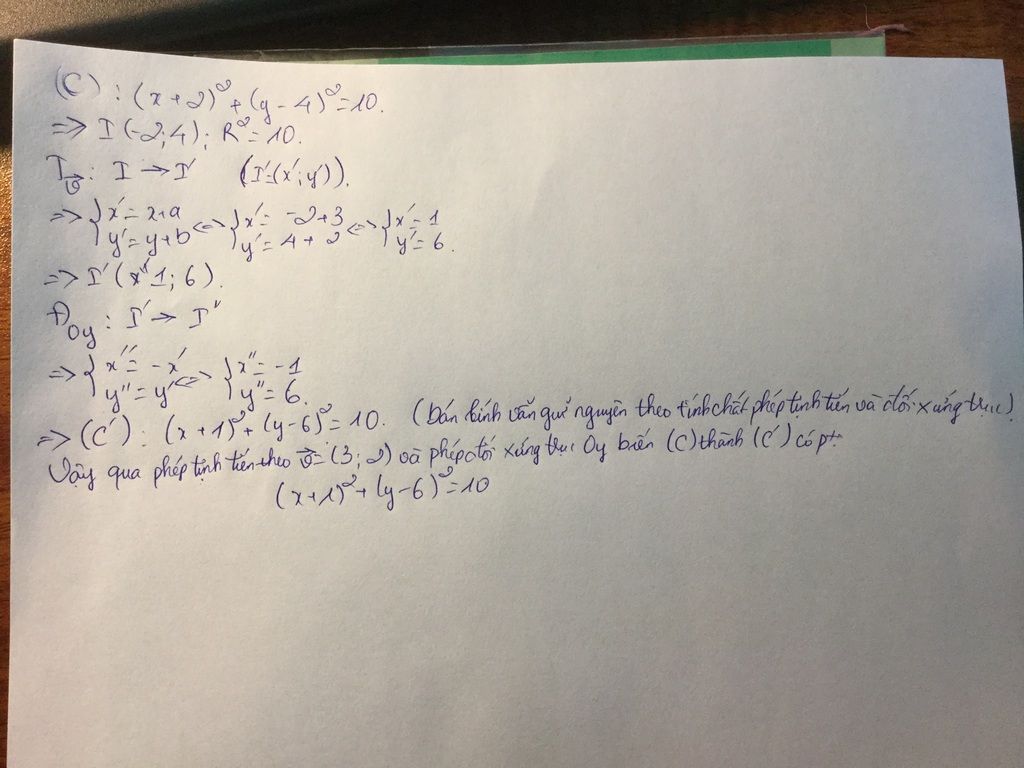 (C) : (x+2)² + (y-4)² = 10.
=> I(-2;4); R² = 10.
T_v⃗ : I → I' (I'=(x';y')).
=> { x' = x+a <=> { x' = -2+3 <=> { x' = 1
y' = y+b y' = 4+2 y' = 6.
=> I'(x" 1; 6).
Đ_Oy : I' → I"
=> { x" = -x' <=> { x" = -1
y" = y' y" = 6.
=> (C') : (x+1)² + (y-6)² = 10. (bán kính vẫn giữ nguyên theo tính chất phép tịnh tiến và đối xứng trục).
Vậy qua phép tịnh tiến theo v⃗ = (3; 2) và phép đối xứng trục Oy biến (C) thành (C') có pt:
(x+1)² + (y-6)² = 10